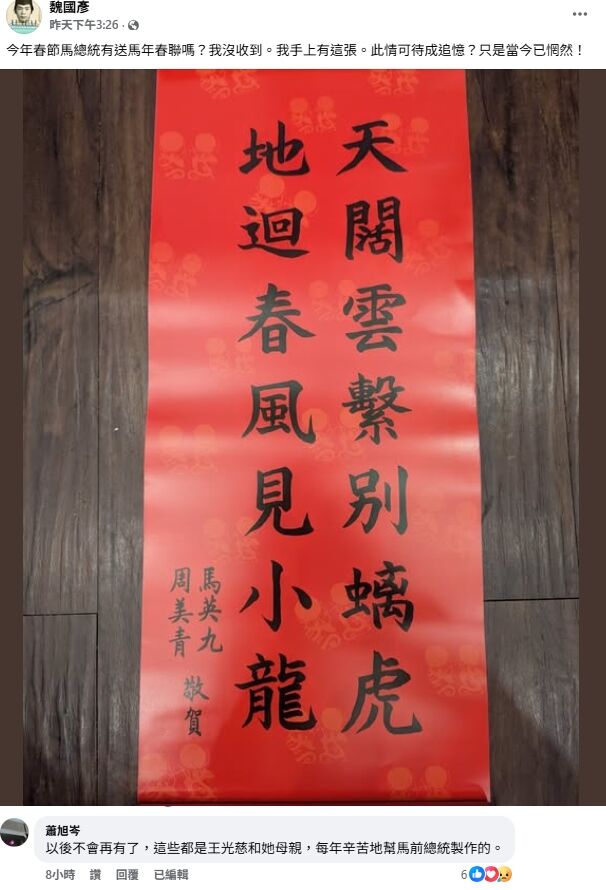 魏國彥
昨天下午3:26
今年春節馬總統有送馬年春聯嗎？我沒收到。我手上有這張。此情可待成追憶？只是當今已惘然！
天闊雲繫別螭虎
地迴春風見小龍
馬英九
周美青
敬賀
蕭旭岑
以後不會再有了，這些都是王光慈和她母親，每年辛苦地幫馬前總統製作的。
8小時 讚 回覆 已編輯 6